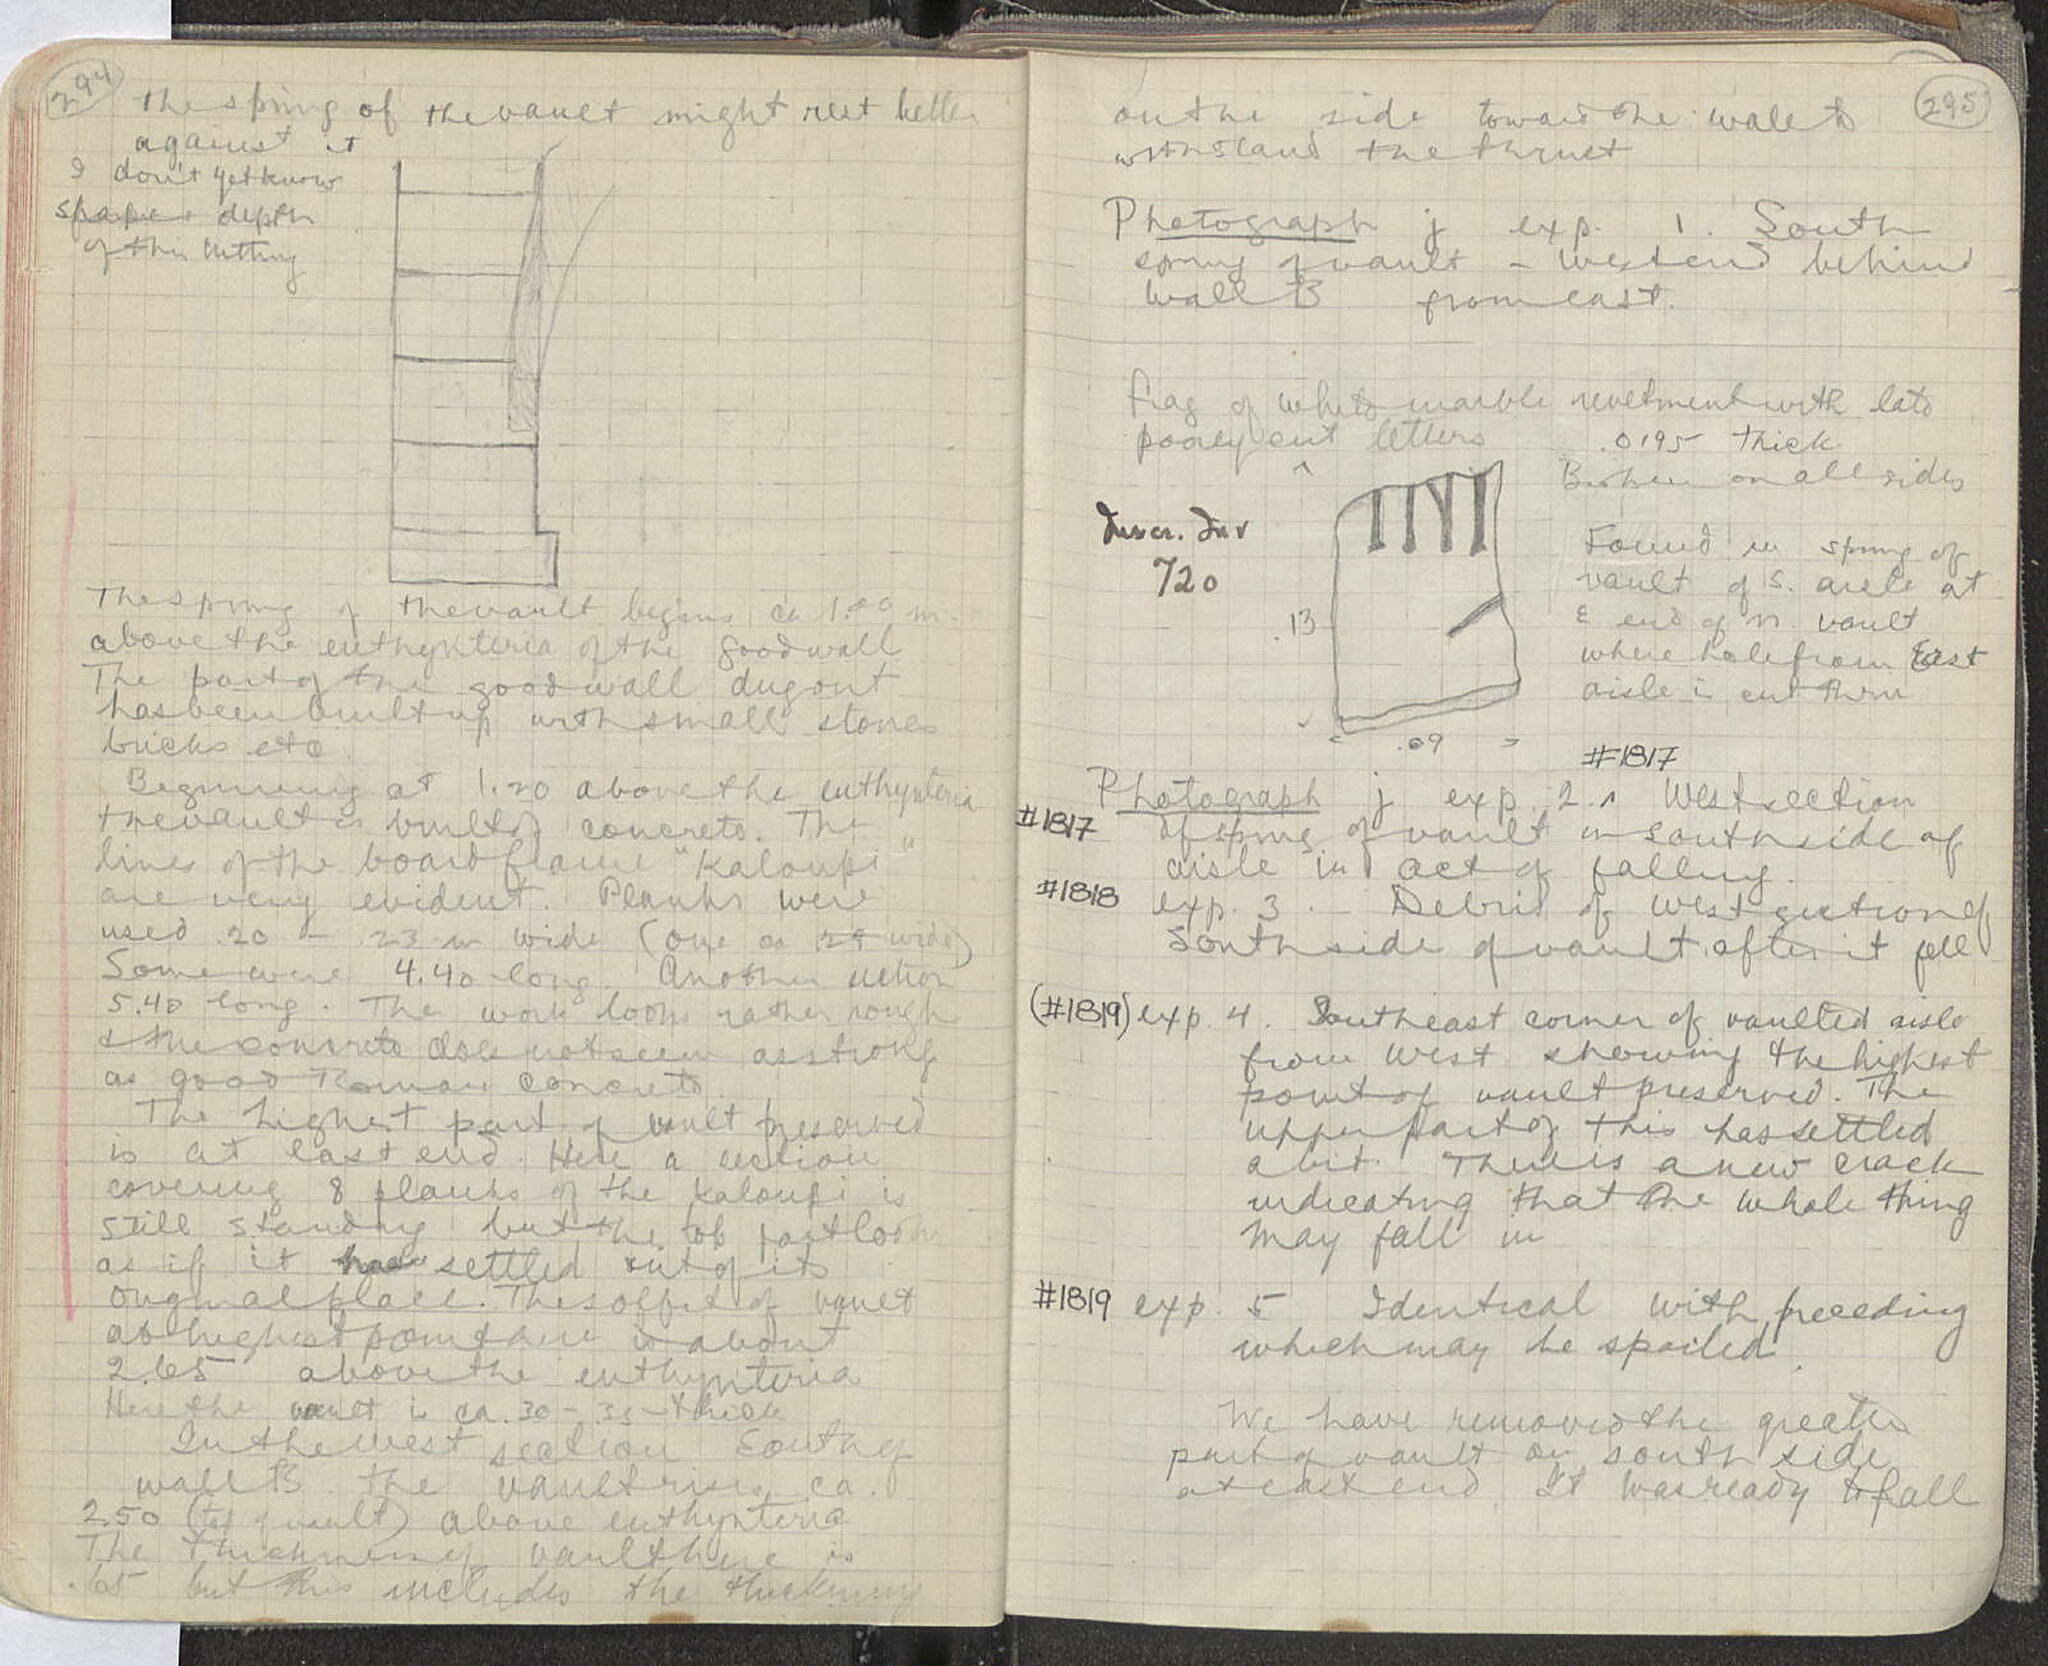 294
the spring of the vault might rest better
against it
I don't yet know
shape & depth
of this cutting
The spring of the vault begins ca 1.00 m.
above the euthynteria of the good wall
The part of the good wall dug out
has been built up with small stones
bricks etc.
Beginning at 1.20 above the euthynteria
the vault is built of concrete. The
lines of the board frame "Kaloupi"
are very evident. Planks were
used .20 - .23 m wide (one as .29 wide)
Some were 4.40 long. Another section
5.40 long. The work looks rather rough
& the concrete does not seem as strong
as good Roman concrete.
The highest part of vault preserved
is at east end. Here a section
covering 8 planks of the Kaloupi is
still standing but the top part looks
as if it has settled out of its
original place. The soffit of vault
at highest point here is about
2.65 above the euthynteria
Here the vault is ca. 30 - 35 - thick
In the west section South of
wall B the vault rises ca.
2.50 (top of vault) above euthynteria
The thickness of vault here is
.65 but this includes the thickening
295
on the side toward the wall to
withstand the thrust
Photograph j exp. 1. South
spring of vault - West end behind
Wall B from east.
frag of white marble revetment with late
poorly cut letters .0195 thick
Broken on all sides
Inscr. Inv
720
.13
.09
Found in spring of
vault of S. aisle at
E end of N. vault
where hole from East
aisle is cut thru
#1817
Photograph j exp. 2. ^ West section
#1817 of spring of vault in south side of
aisle in act of falling.
#1818 exp. 3. - Debris of west section of
South side of vault after it fell
(#1819) exp. 4. Southeast corner of vaulted aisle
from west showing the highest
point of vault preserved. The
upper part of this has settled
a bit. There is a new crack
indicating that the whole thing
may fall in
#1819 exp. 5 Identical with preceding
which may be spoiled.
We have removed the greater
part of vault on south side
at east end. It was ready to fall